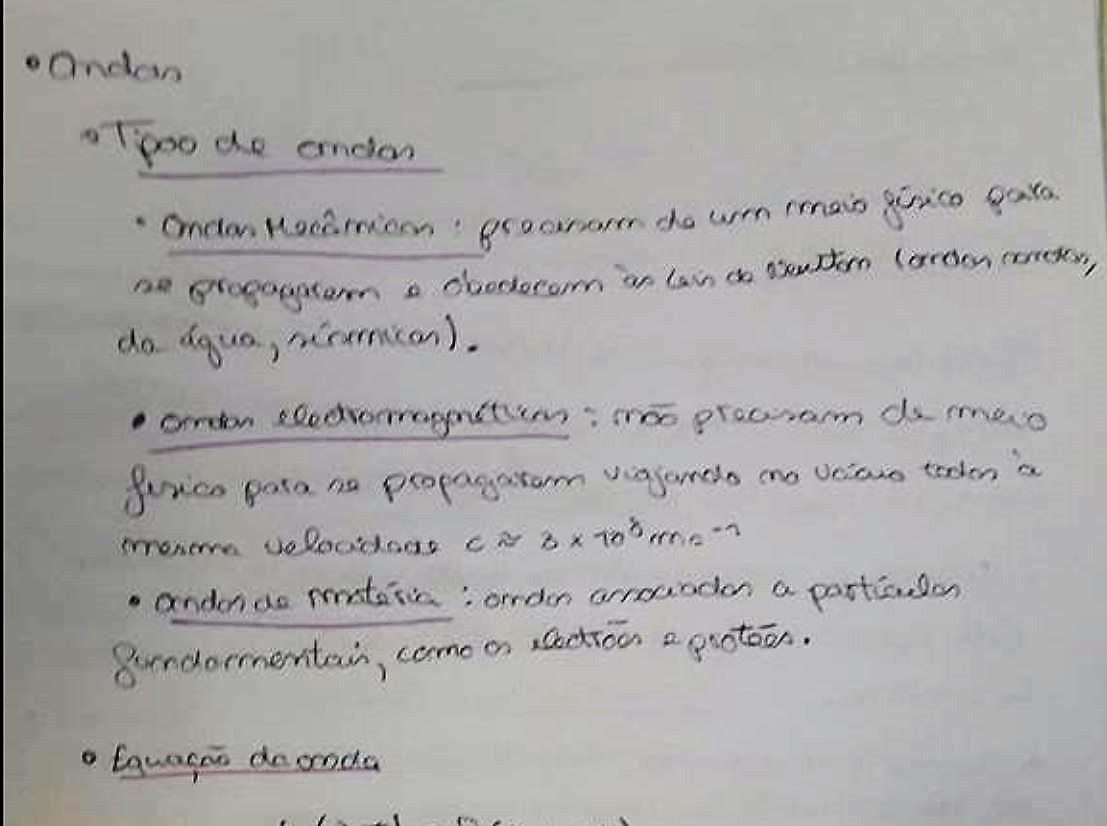 • Ondas
• Tipo de ondas
• Ondas Mecânicas : precisam de um meio físico para
se propagarem e obedecem às leis de Newton (ondas
da água, sísmicas).
• ondas electromagnéticas : não precisam de meio
físico para se propagarem viajando no vácuo todas à
mesma velocidade c ≈ 3 × 10⁸ ms⁻¹
• ondas de matéria : ondas associadas a partículas
fundamentais, como os electrões e protões.
• Equação da onda